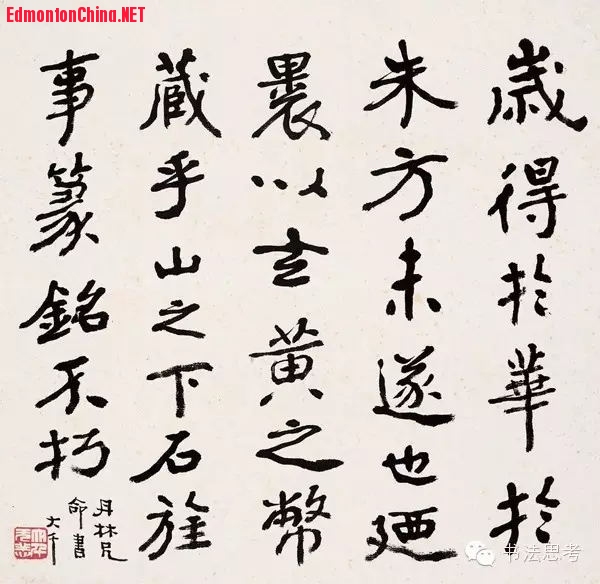 EdmontonChina.NET
歲得於華於
朱方未遂也廼
裹以玄黃之幣
藏乎山之下石旌
事篆銘不朽
丹林兄
命書
大千
书法思考